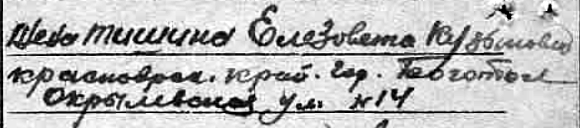 Шеба тишина Елезовета Кузьмовна
красноярск. край. гор. Боготол
Окрылевская ул. N 14